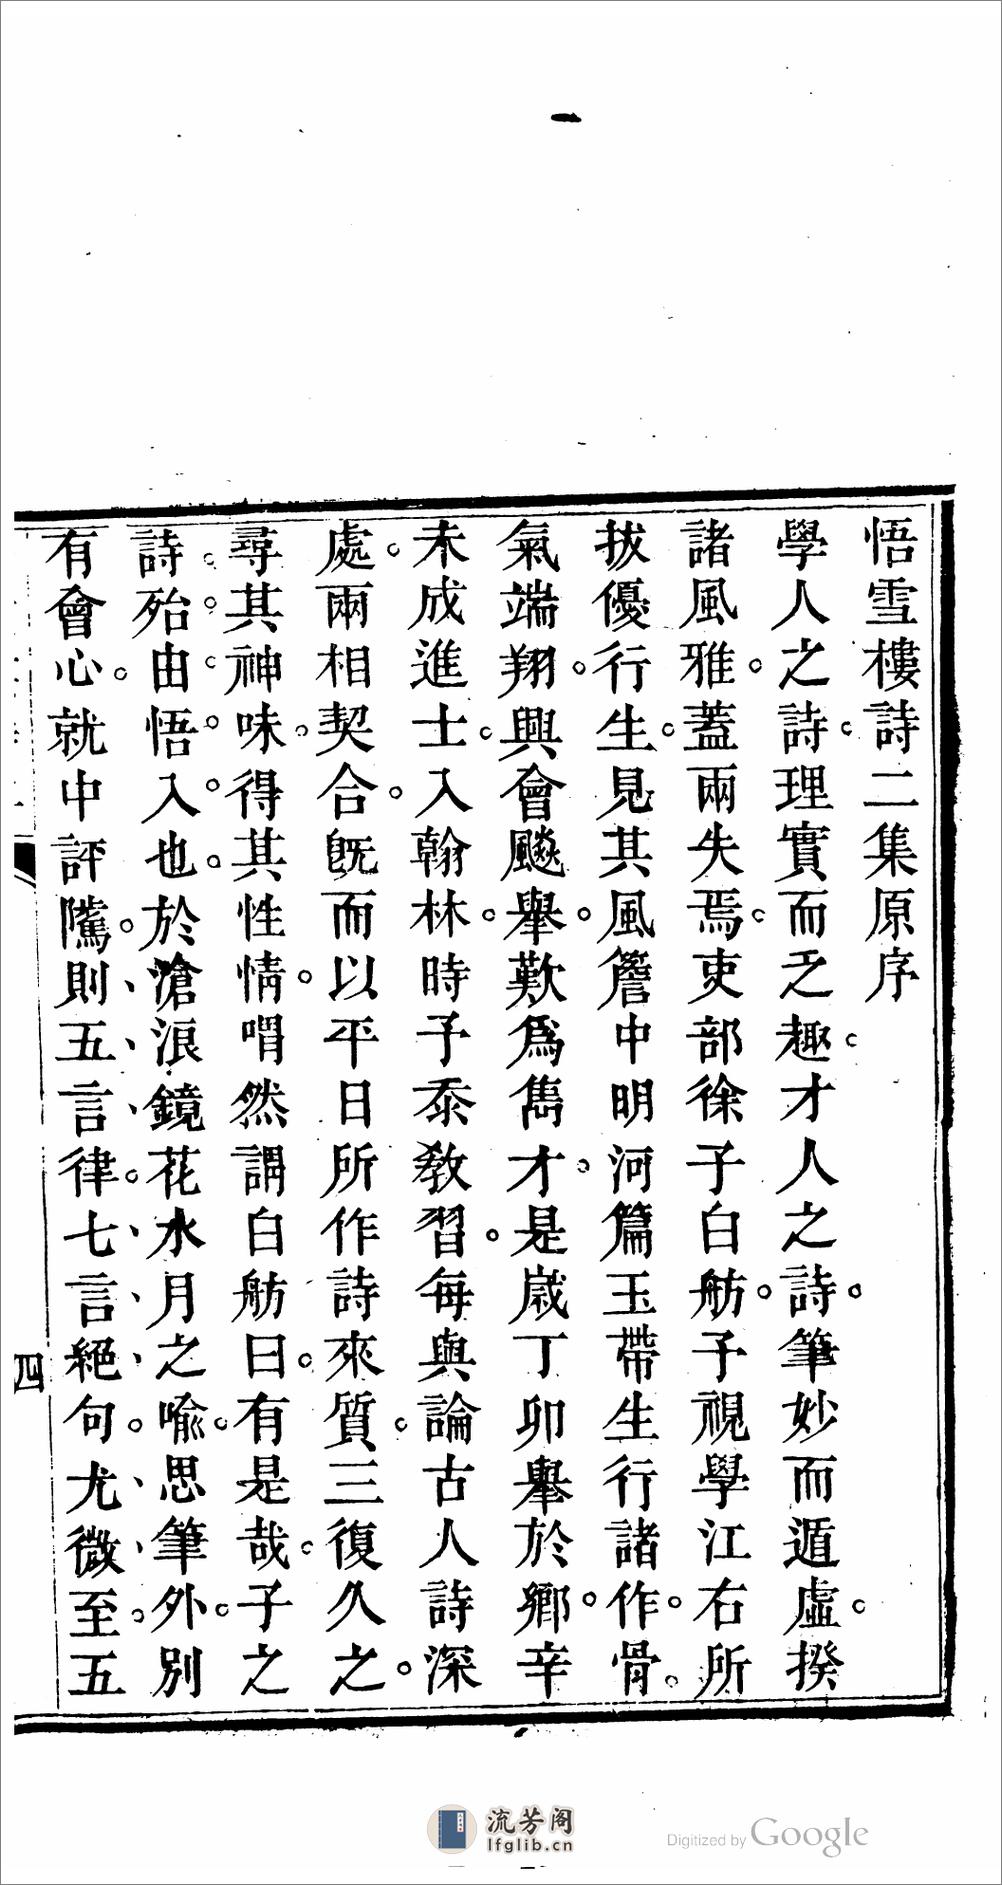 悟雪樓詩二集原序
學人之詩。理實而乏趣。才人之詩。筆妙而遁虛。揆
諸風雅。蓋兩失焉。吏部徐子白舫。予視學江右所
拔優行生。見其風簷中明河篇玉帶生行諸作。骨。
氣端翔。興會飈舉。歎爲雋才。是歲丁卯舉於鄉。辛
未成進士。入翰林。時予忝敎習。每與論古人詩深
處。兩相契合。旣而以平日所作詩來質。三復久之。
尋其神味。得其性情。喟然謂白舫曰。有是哉。子之
詩。殆。由。悟。入。也。於滄浪鏡花水月之喻。思筆外。別
有會心。就中評隲。則、五、言、律。七、言、絕、句。尤、微、至。五
四
流芳阁
lfglib.cn
Digitized by Google